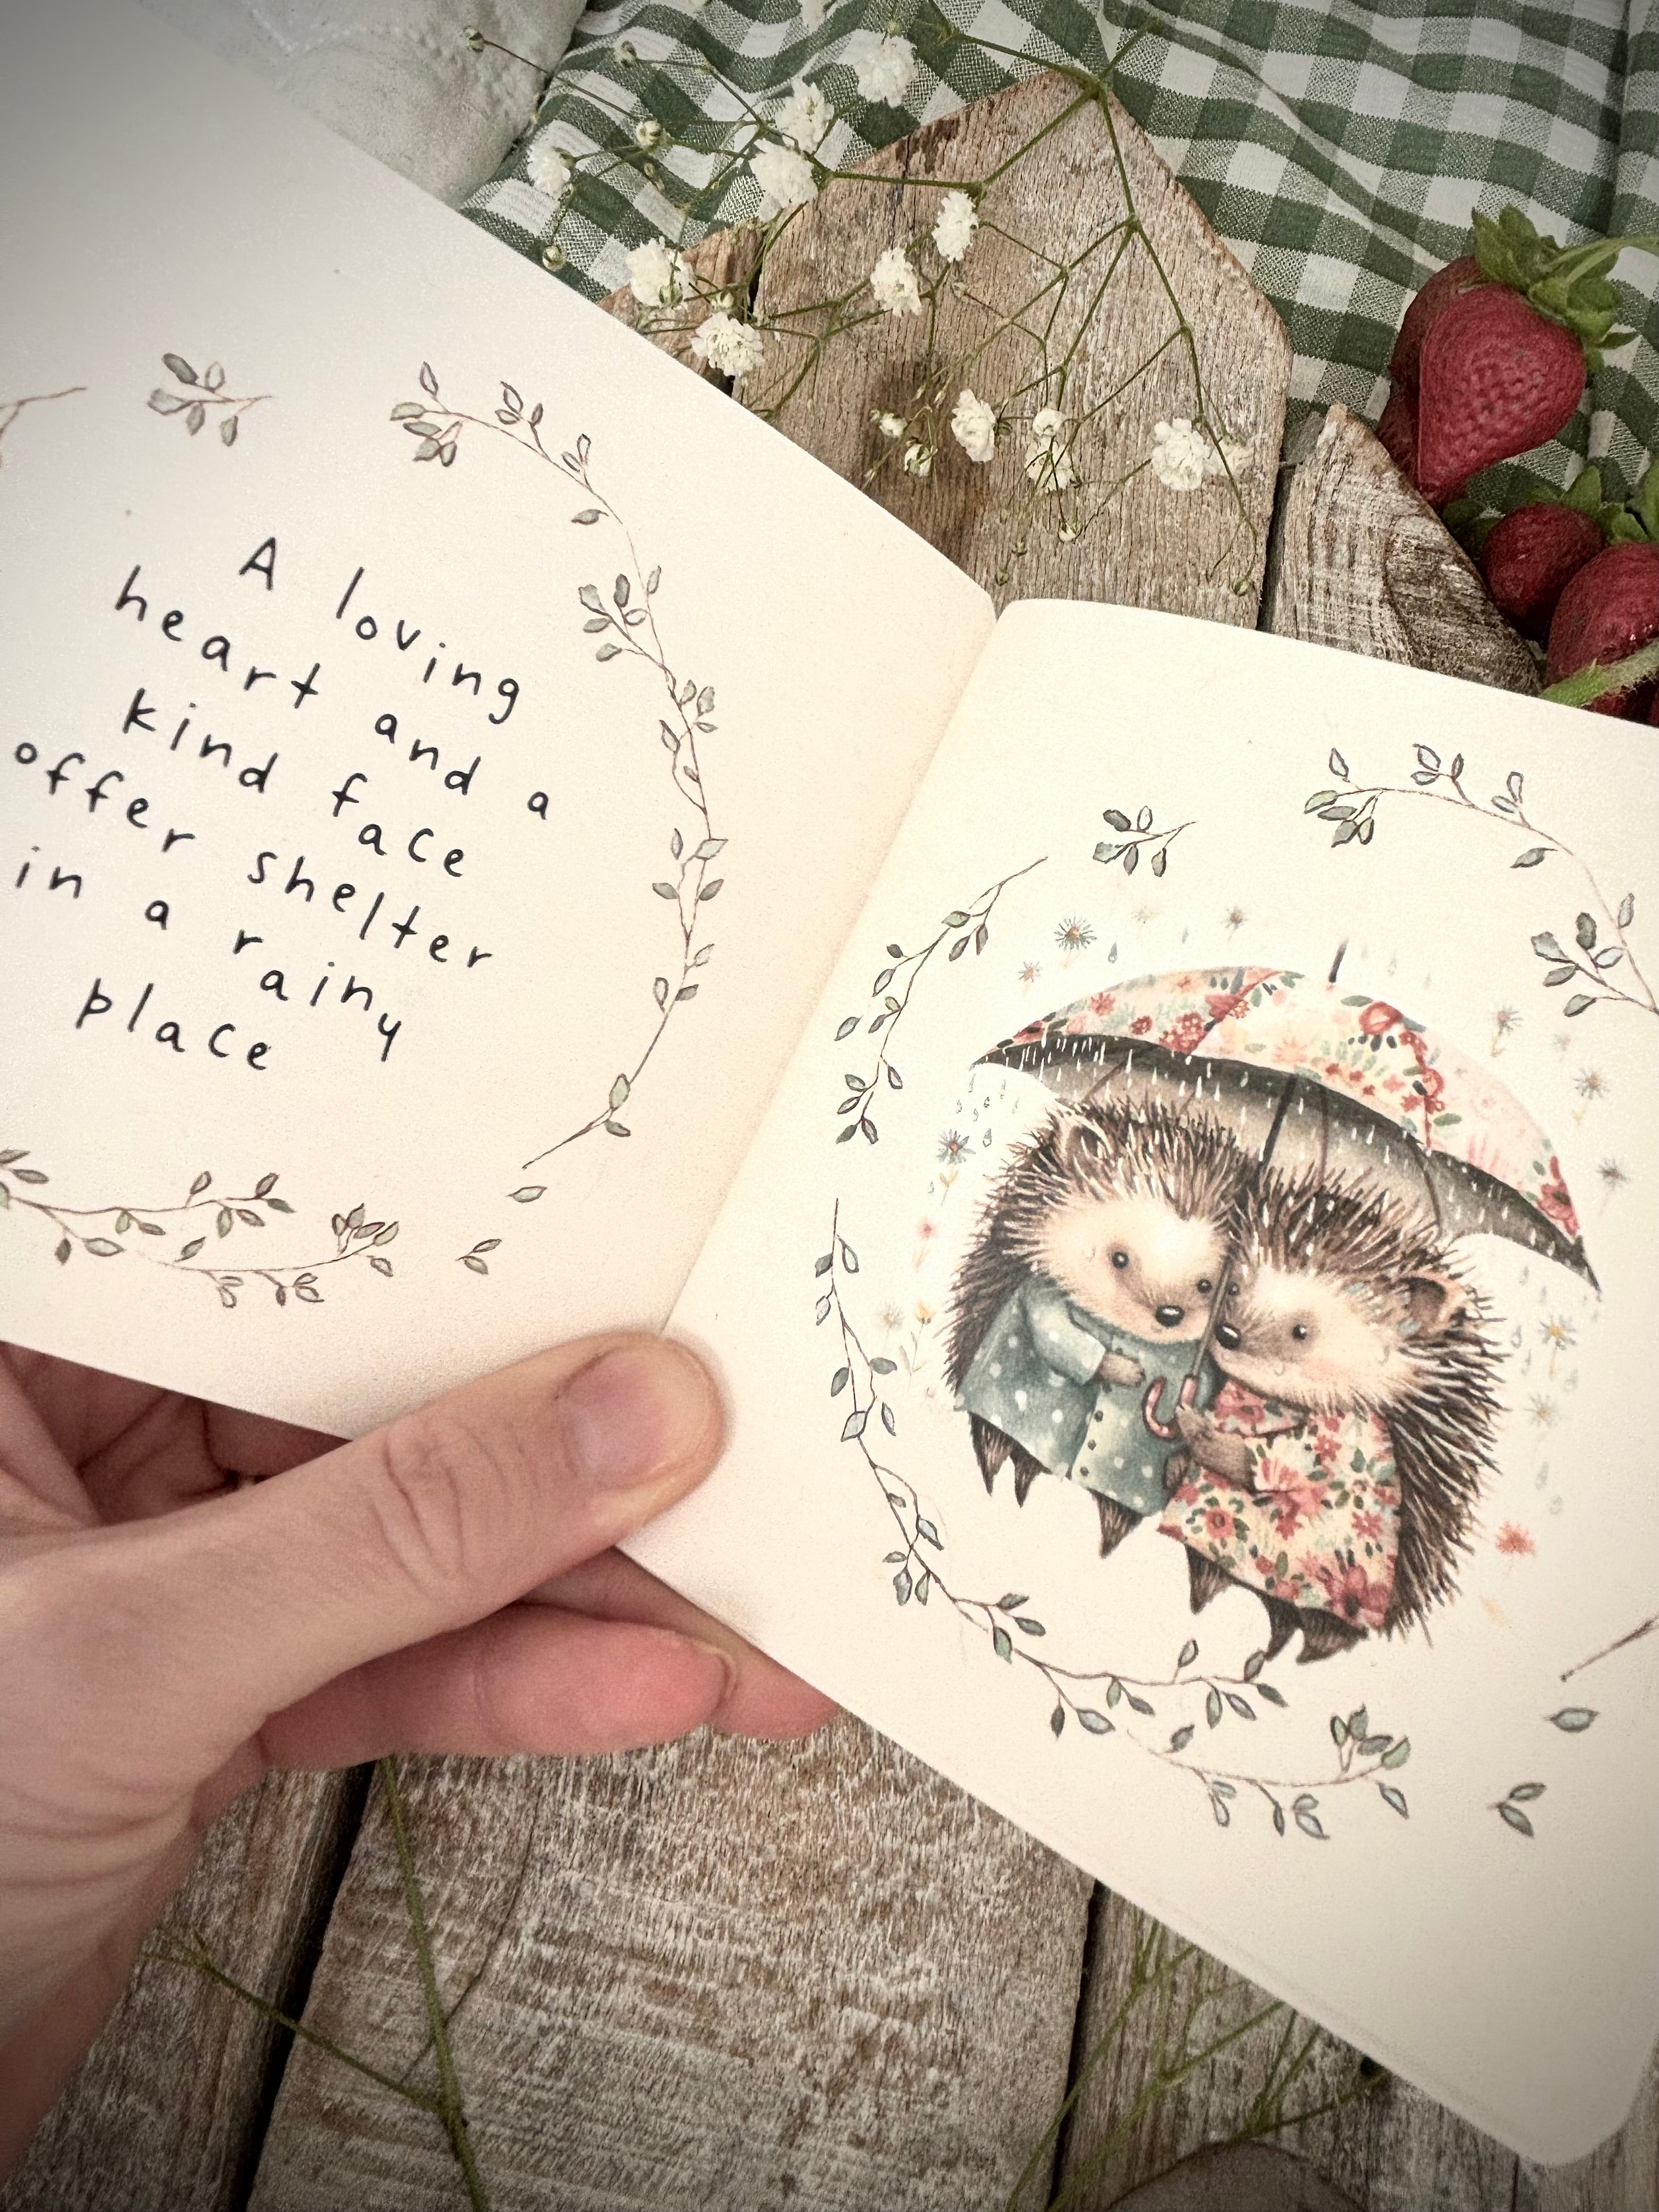 A loving
heart and a
kind face
offer shelter
in a rainy
place